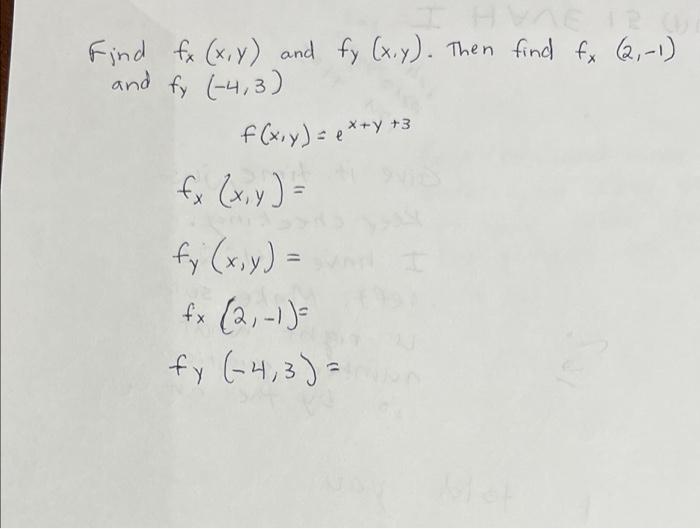 Find fx (x,y) and fy (x,y). Then find fx (2,-1)
and fy (-4,3)
f(x,y) = e^x+y+3
fx (x,y) =
fy (x,y) =
fx (2,-1)=
fy (-4,3) =